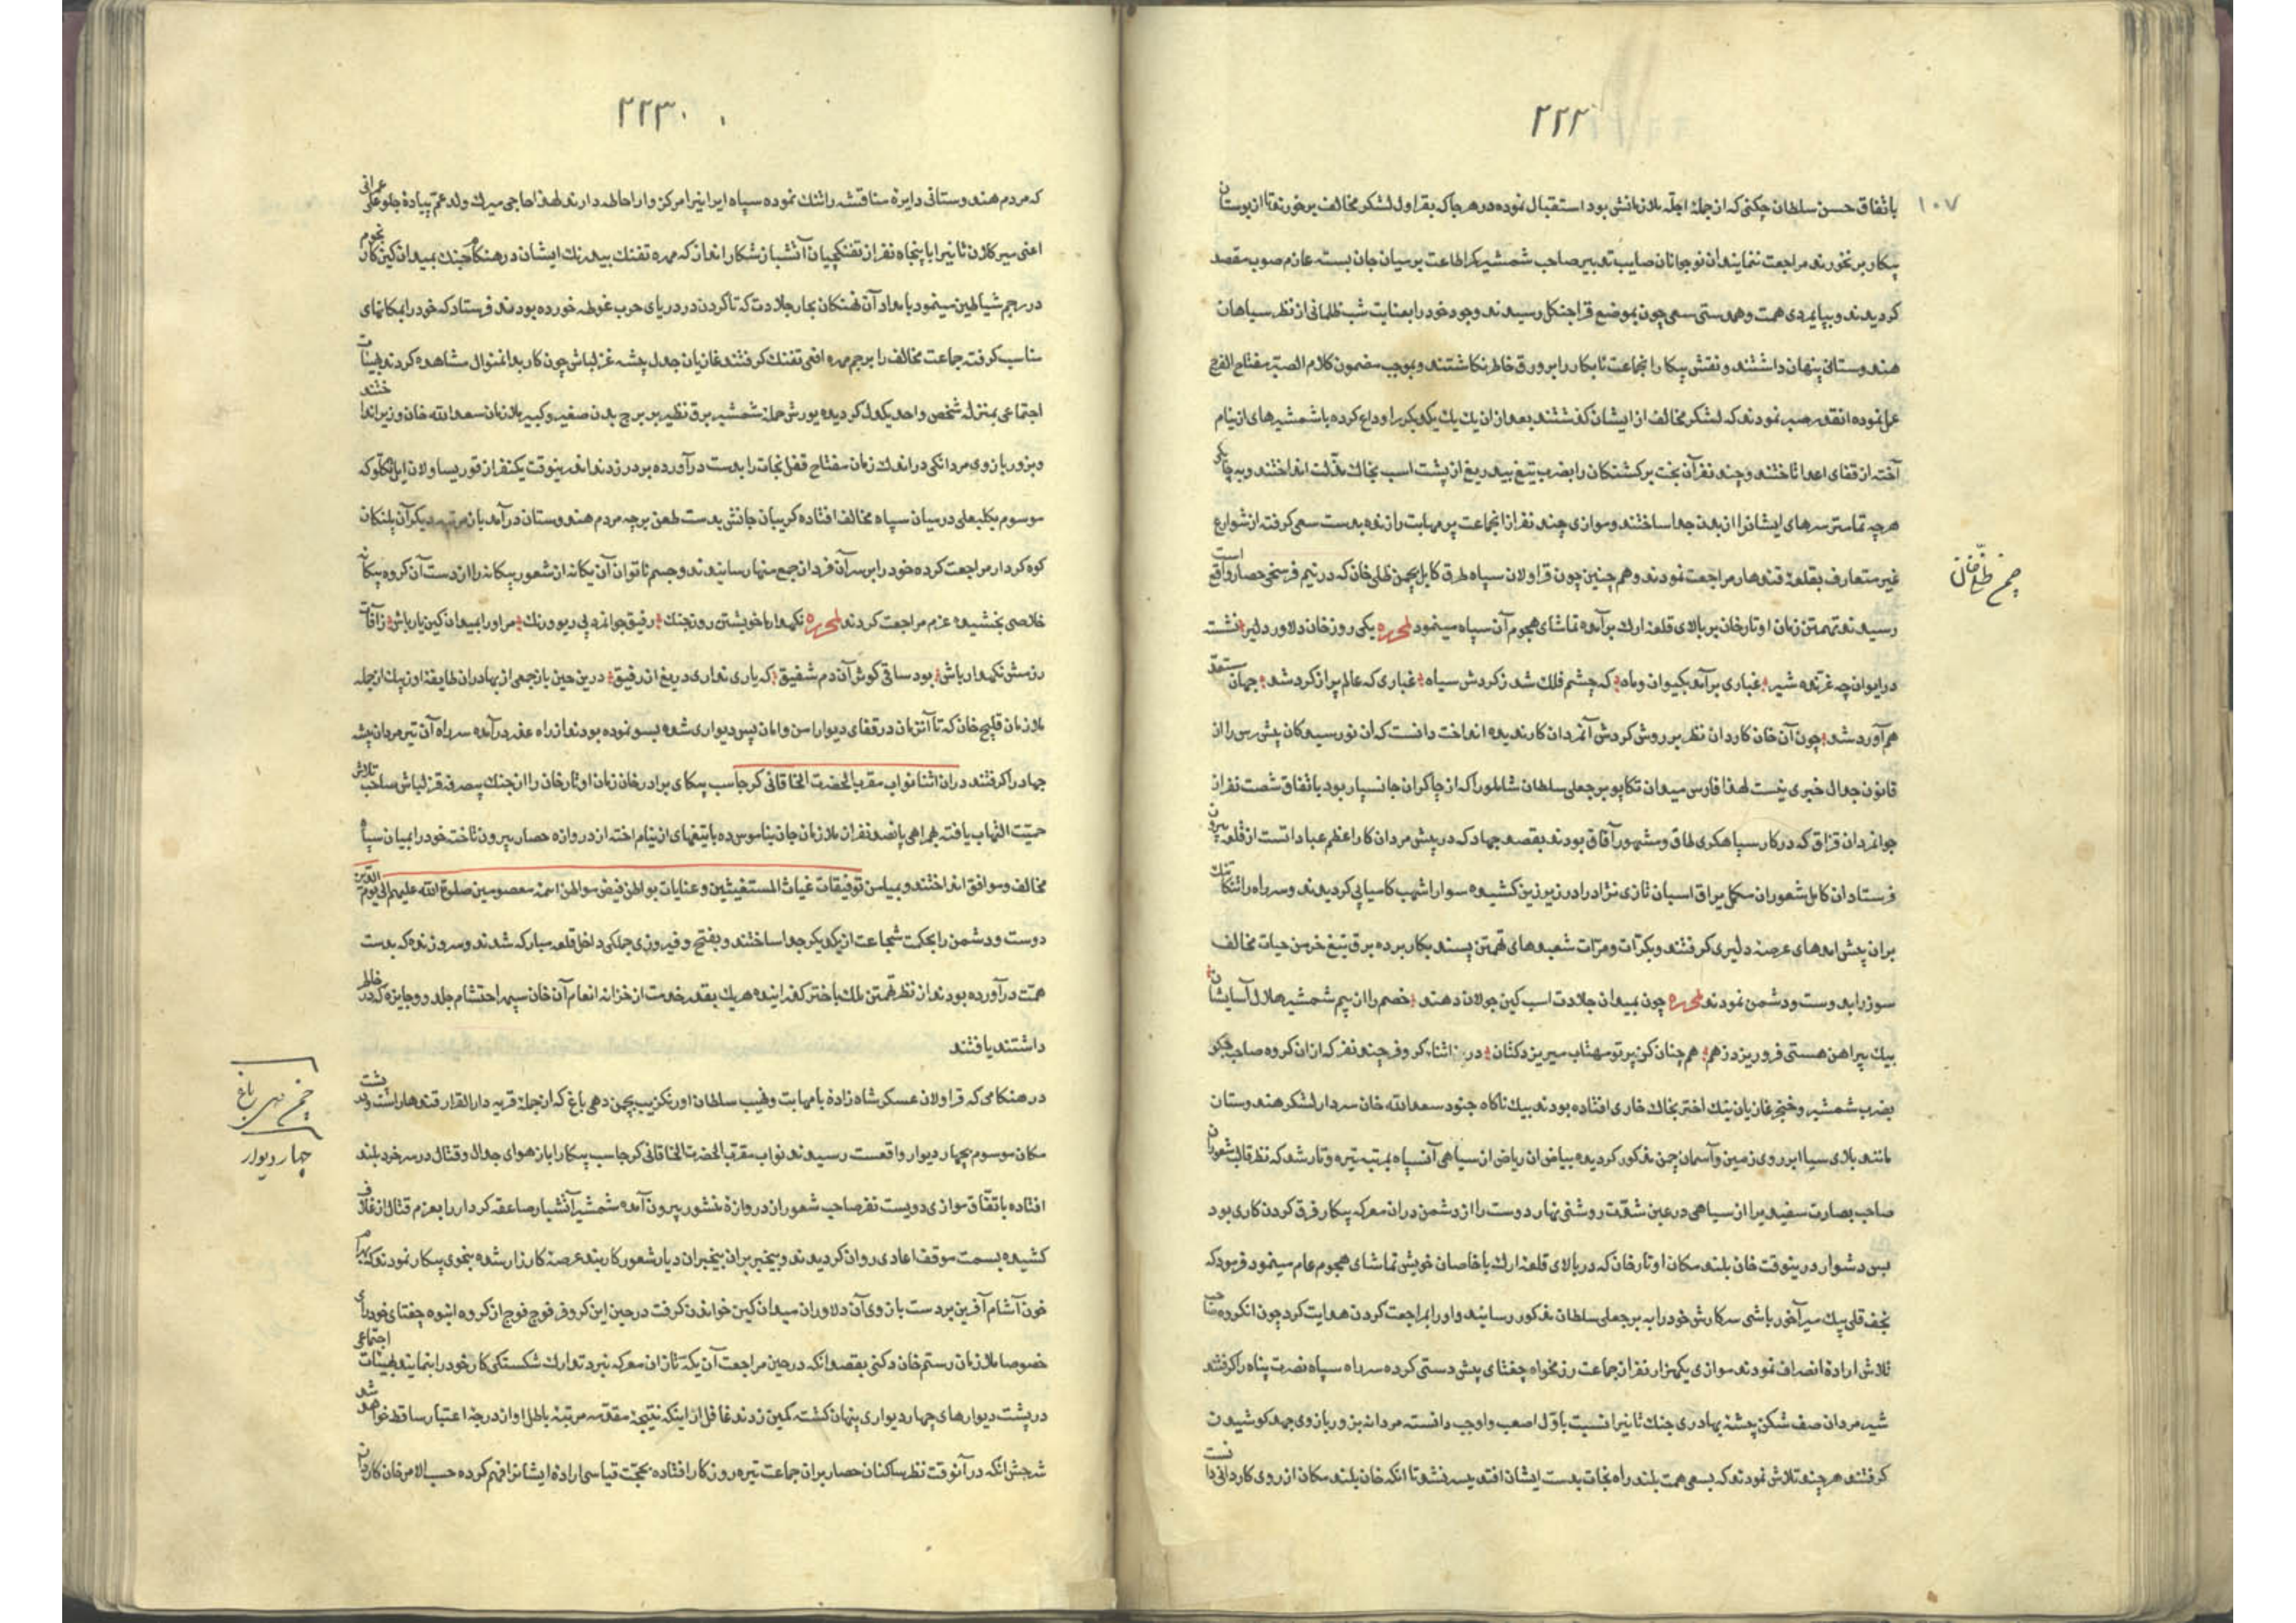 ۲۲۲
۱۰۷
باتفاق حسن سلطان چکنی که از جملۀ اجلّه ملازمانش بود استقبال نموده در هر جا که بقراول لشکر مخالف برخورند تا از بوستان
پیکار برنخورند مراجعت ننمایند آن نوجوانان صایب تدبیر صاحب شمشیر کمر اطاعت بر میان جان بسته عازم صوب مقصد
کردیدند و بپایمردی همت و همدستی سعی چون بموضع قراجنکل رسیدند وجود خود را بعنایت شب ظلمانی از نظر سپاهان
هندوستانی پنهان داشتند و نقش پیکار انجماعت نابکار را بر ورق خاطر نکاشتند و بموجب مضمون کلام الصبر مفتاح الفرج
عمل نموده انقدر صبر نمودند که لشکر مخالف از ایشان کذشتند بعد از ان یك یك یکدیکر را وداع کرده با شمشیرهای از نیام
آخته از قفای اعدا تاختند و چند نفر آن بخت برکشتکان را بضرب تیغ بیدریغ از پشت اسب بخاك مذلت انداختند و به چابکی
هر چه تمامتر سرهای ایشانرا از بدن جدا ساختند و موازی چند نفر از انجماعت پر مهابت را زنده بدست سعی کرفته از شوارع
غیر متعارف بقلعۀ قندهار مراجعت نمودند و هم چنین چون قراولان سپاه طرق کابل بچمن ظلی خان که در نیم فرسخی حصار واقع است
رسیدند تهمتن زمان اوتار خان بر بالای قلعۀ ارك برآمده تماشای هجوم آن سپاه مینمود لمحرره یکی روز خان دلاور دلیر نشسته
در ایوان چه غرنده شیر غباری برآمد بکیوان و ماه که چشم فلك شد ز کردش سیاه غباری که عالم پر از کرد شد جهان مستعد
هم آورد شد چون آن خان کاردان نظر بر روش کردش آنمردان کارندیده انداخت دانست که ان نورسیدکان پیش رس را از
قانون جدال خبری نیست لهذا فارس میدان تکاپو برجعلی سلطان شاملو را که از چاکران جانسپار بود باتفاق شصت نفر از
جوانمردان قزاق که در کار سپاهکری طاق و مشهور آفاق بودند بقصد جهاد که در پیش مردان کار اعظم عباداتست از قلعه بیرون
فرستاد ان کامل شعوران مکمل یراق اسبان تازی نژاد را در زیر زین کشیده سوار اشهب کامیابی کردیدند و سر راه را تنکاتنك
بران پیش امدهای عرصۀ دلیری کرفتند و بکرّات و مرّات شعبدهای تهمتن پسند بکار برده برق تیغ خرمن حیات مخالف
سوز را بدوست و دشمن نمودند لمحرره چون بمیدان جلادت اسب کین جولان دهند خصم را از بیم شمشیر هلال آسایشان
بیك پیراهن هستی فرو ریزد ز هم هم چنان کز پرتو مهتاب میریزد کتان در اثناء کر و فر چند نفر که از ان کروه صاحب جکر
بضرب شمشیر و خنجر غازیان نیك اختر بخاك خاری افتاده بودند بیك ناکاه جنود سعدالله خان سردار لشکر هندوستان
مانند بلای سیاه ابر روی زمین و آسمان چمن مذکور کردیده بیاض ان ریاض از سیاهی آنسپاه بمرتبه تیره و تار شد که نظر قالب شعوران
صاحب بصارت سفید را از سیاهی در عین شدّت روشنی نهار دوست را از دشمن دران معرکه پیکار فرق کردن کاری بود
بس دشوار درینوقت خان بلند مکان اوتار خان که در بالای قلعۀ ارك با خاصان خویش تماشای هجوم عام مینمود فرمود که
نجف قلی بیك میرآخور باشی سرکارش خود را به برجعلی سلطان مذکور رسانید و او را بمراجعت کردن هدایت کرد چون انکروه صاحب
تلاش ارادۀ انصراف نمودند موازی یکهزار نفر از جماعت رزمخواه چغتای پیش دستی کرده سر راه سپاه نصرت پناه را کرفتند
شیر مردان صف شکن پیشۀ بهادری جنك ثانیرا نسبت باوّل اصعب و اوجب دانسته مردانه بزور بازوی جهد کوشیدن
کرفتند هر چند تلاش نمودند که بسعی همت بلند راه نجات بدست ایشان افتد میسر نشد تا انکه خان بلند مکان از روی کاردانی دانست
چمن ظلی خان
۲۲۳
که مردم هندوستانی دایرۀ مناقشه را تنك نموده سپاه ایرانیرا مرکز وار احاطه دارند لهذا حاجی میرك ولد عمّ پیادۀ جلو علی عمرانی
اعنی میر کلان ثانیرا با پنجاه نفر از تفنکچیان آتشبار شکار انداز که مهره تفنك بیدرنك ایشان در هنکام جنك بمیدان کین کار نجوم
در رجم شیاطین مینمود بامداد آن نهنکان بحار جلادت که تا کردن در دریای حرب غوطه خورده بودند فرستاد که خود را بمکانهای
مناسب کرفته جماعت مخالف را برجم مهره افعی تفنك کرفتند غازیان جدل پیشه قزلباش چون کار بدانمنوال مشاهده کردند بهیئات
اجتماعی بمنزله شخص واحد یکدل کردیده یورش حملۀ شمشیر برق نظیر بر برج بدن صغیر و کبیر ملازمان سعدالله خان وزیر انداختند
و بزور بازوی مردانکی در اندك زمان مفتاح قفل نجات را بدست درآورده بر در زدند اندرینوقت یکنفر از قور یساولان ایمانکلو که
موسوم بکلبعلی در میان سپاه مخالف افتاده کریبان جانش بدست طعن برچه مردم هندوستان درآمد بار مرتبه دیکر آن پلنکان
کوه کردار مراجعت کرده خود را بر سر آن فردان جمع منها رسانیدند و جسم ناتوان آن یکانه از شعور بیکانه را از دست آن کروه بیکانه
خلاصی بخشیده عزم مراجعت کردند لمحرره نکهدار با خویشتن روز جنك رفیق جوانمرد بی ریو و رنك مر او را بمیدان کین یار باش ز آفات
رزمش نکهدار باش بود ساقی کوش آن دم شفیق که یاری نداری دریغ از رفیق درین حین باز جمعی از بهادران طایفۀ اوزبك از جمله
ملازمان قلیچ خان که تا آنزمان در قفای دیوار امن و امان پس دیواری شده بسو نموده بودند از راه عذر درآمده سر راه آن شیر مردان پیشه
جهاد را کرفتند دران اثنا نواب مقرب الحضرت الخاقانی کرجاسب بیکای برادر خان زمان اوتار خان را از جنك بیصرفه قزلباش صاحب تلاش
حمیّت التهاب یافته بهمراهی پانصد نفر از ملازمان جان بناموس ده با تیغهای از نیام اخته از دروازه حصار بیرون تاخت خود را بمیان سپاه
مخالف و موافق انداختند و بمیامن توفیقات غیاث المستغیثین و عنایات بواطن فیض مواطن ائمۀ معصومین صلوة الله علیهم الی یوم الدین
دوست و دشمن را بحکمت شجاعت از یکدیکر جدا ساختند و بفتح و فیروزی جملکی داخل قلعه مبارکه شدند و سر و زنده که بدست
همّت درآورده بودند از نظر تهمتن ملك باختر کذرانیده هر یك بقدر خدمت از خزانه انعام آن خان سپهر احتشام جلدو و جایزه که در خاطر
داشتند یافتند
در هنکامی که قراولان عسکر شاه زادۀ با مهابت و نهیب سلطان اورنکزیب بچمن دهی باغ که از جملۀ قریه دارالقرار قندهار است و در پشت
مکان موسوم بچهار دیوار واقعست رسیدند نواب مقرب الحضرت الخاقانی کرجاسب بیکا را باز هوای جدال و قتال در سر خرد بلند
افتاده باتفّاق موازی دویست نفر صاحب شعور از دروازۀ منشور بیرون آمده شمشیر آتشبار صاعقه کردار را بعزم قتال از غلاف
کشیده بسمت موقف اعادی روان کردیدند و بیخبر بران بیخبران دیار شعور کاربند عرصۀ کارزار شده بنحوی پیکار نمودند که بهرام
خون آشام آفرین بر دست بازوی آن دلاوران میدان کین خواندن کرفت درحین این کر و فر فوج فوج از کروه انبوه چغتای خودرای
خصوصا ملازمان رستم خان دکنی بقصد انکه در حین مراجعت آن یکه تازان معرکه نبرد تدارك شکستکی کار خود را بنمایند بهیئات اجتماعی
در پشت دیوارهای چهار دیواری پنهان کشته کمین زدند غافل از اینکه نتیجۀ مقدّمه مرتبۀ باطل او از درجۀ اعتبار ساقط خواهد شد
شرحش انکه در آنوقت نظر ساکنان حصار بران جماعت تیره روزکار افتاده بحجّت قیاسی ارادۀ ایشانرا فهم کرده حسب الامر خان کاردان
چمن دهی باغ
چهار دیوار